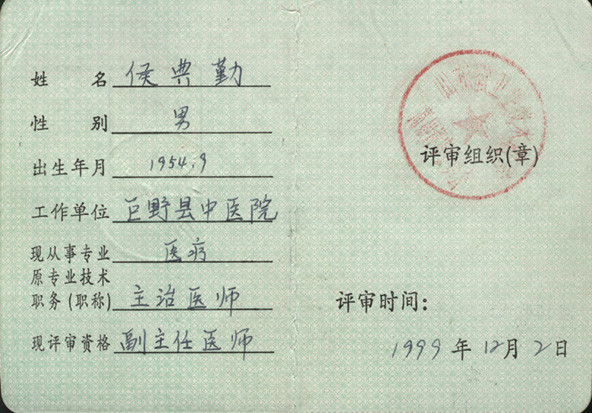 姓 名 侯典勤
性 别 男
出生年月 1954.9
工作单位 巨野县中医院
现从事专业 医疗
原专业技术
职务(职称) 主治医师
现评审资格 副主任医师
评审组织(章)
评审时间:
1999年12月2日